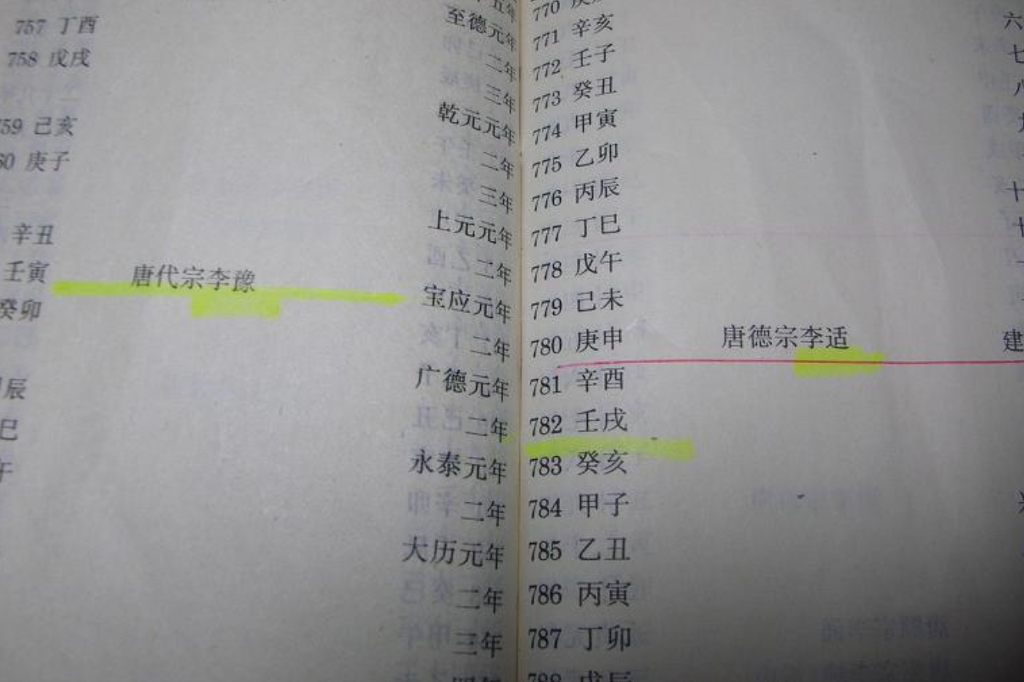 757 丁酉
758 戊戌
59 己亥
60 庚子
辛丑
壬寅 唐代宗李豫
癸卯
辰
巳
午
五年
至德元年
二年
三年
乾元元年
二年
三年
上元元年
二年
宝应元年
二年
广德元年
二年
永泰元年
二年
大历元年
二年
三年
四年
770 庚
771 辛亥
772 壬子
773 癸丑
774 甲寅
775 乙卯
776 丙辰
777 丁巳
778 戊午
779 己未
780 庚申 唐德宗李适 建
781 辛酉
782 壬戌
783 癸亥
784 甲子
785 乙丑
786 丙寅
787 丁卯
788 戊辰
六
七
八
九
十
十